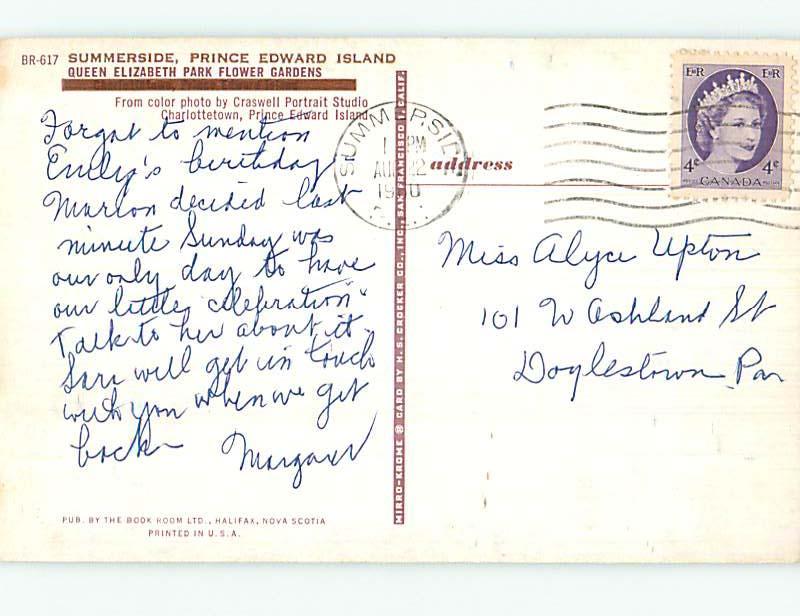 BR-617 SUMMERSIDE, PRINCE EDWARD ISLAND
QUEEN ELIZABETH PARK FLOWER GARDENS
From color photo by Craswell Portrait Studio
Charlottetown, Prince Edward Island
Forgot to mention
Emily's birthday
Marion decided last
minute Sunday was
our only day to have
our little "celebration"
Talk to her about it.
will get in touch
with you when we get
back
Margaret
PUB. BY THE BOOK ROOM LTD., HALIFAX, NOVA SCOTIA
PRINTED IN U.S.A.
MIRRO-KROME ® CARD BY H. S. CROCKER CO., INC., SAN FRANCISCO 1, CALIF.
SUMMERSIDE
PM
AUG 22
1960
address
E R E R
4¢ 4¢
CANADA
Miss Alyce Upton
101 W Ashland St
Doylestown Pa